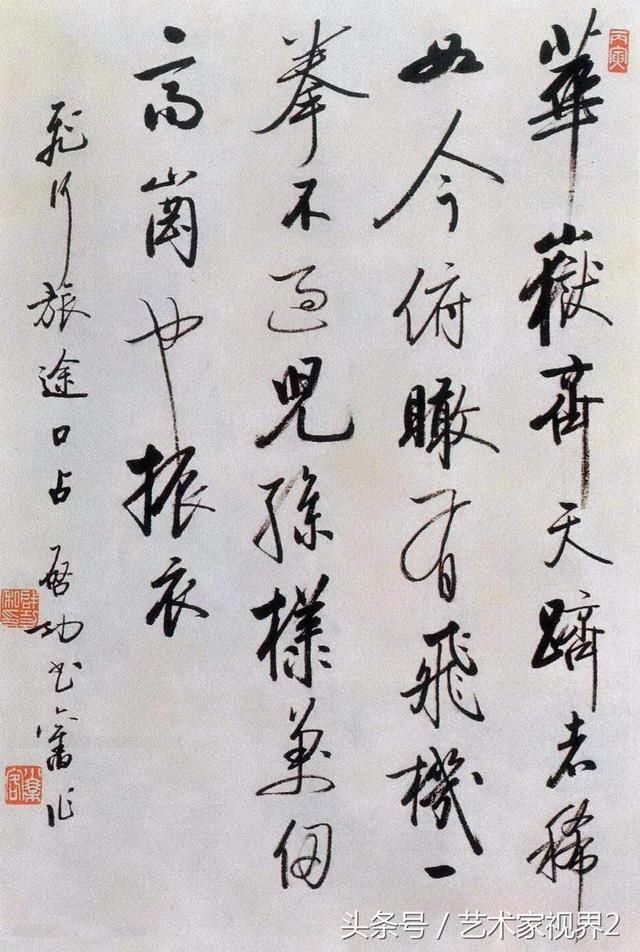 丙寅
華嶽齊天躋者稀
如今俯瞰有飛機一
拳不過兒孫樣萬仞
高崗也振衣
飛行旅途口占 啓功書舊作
头条号 / 艺术家视界2